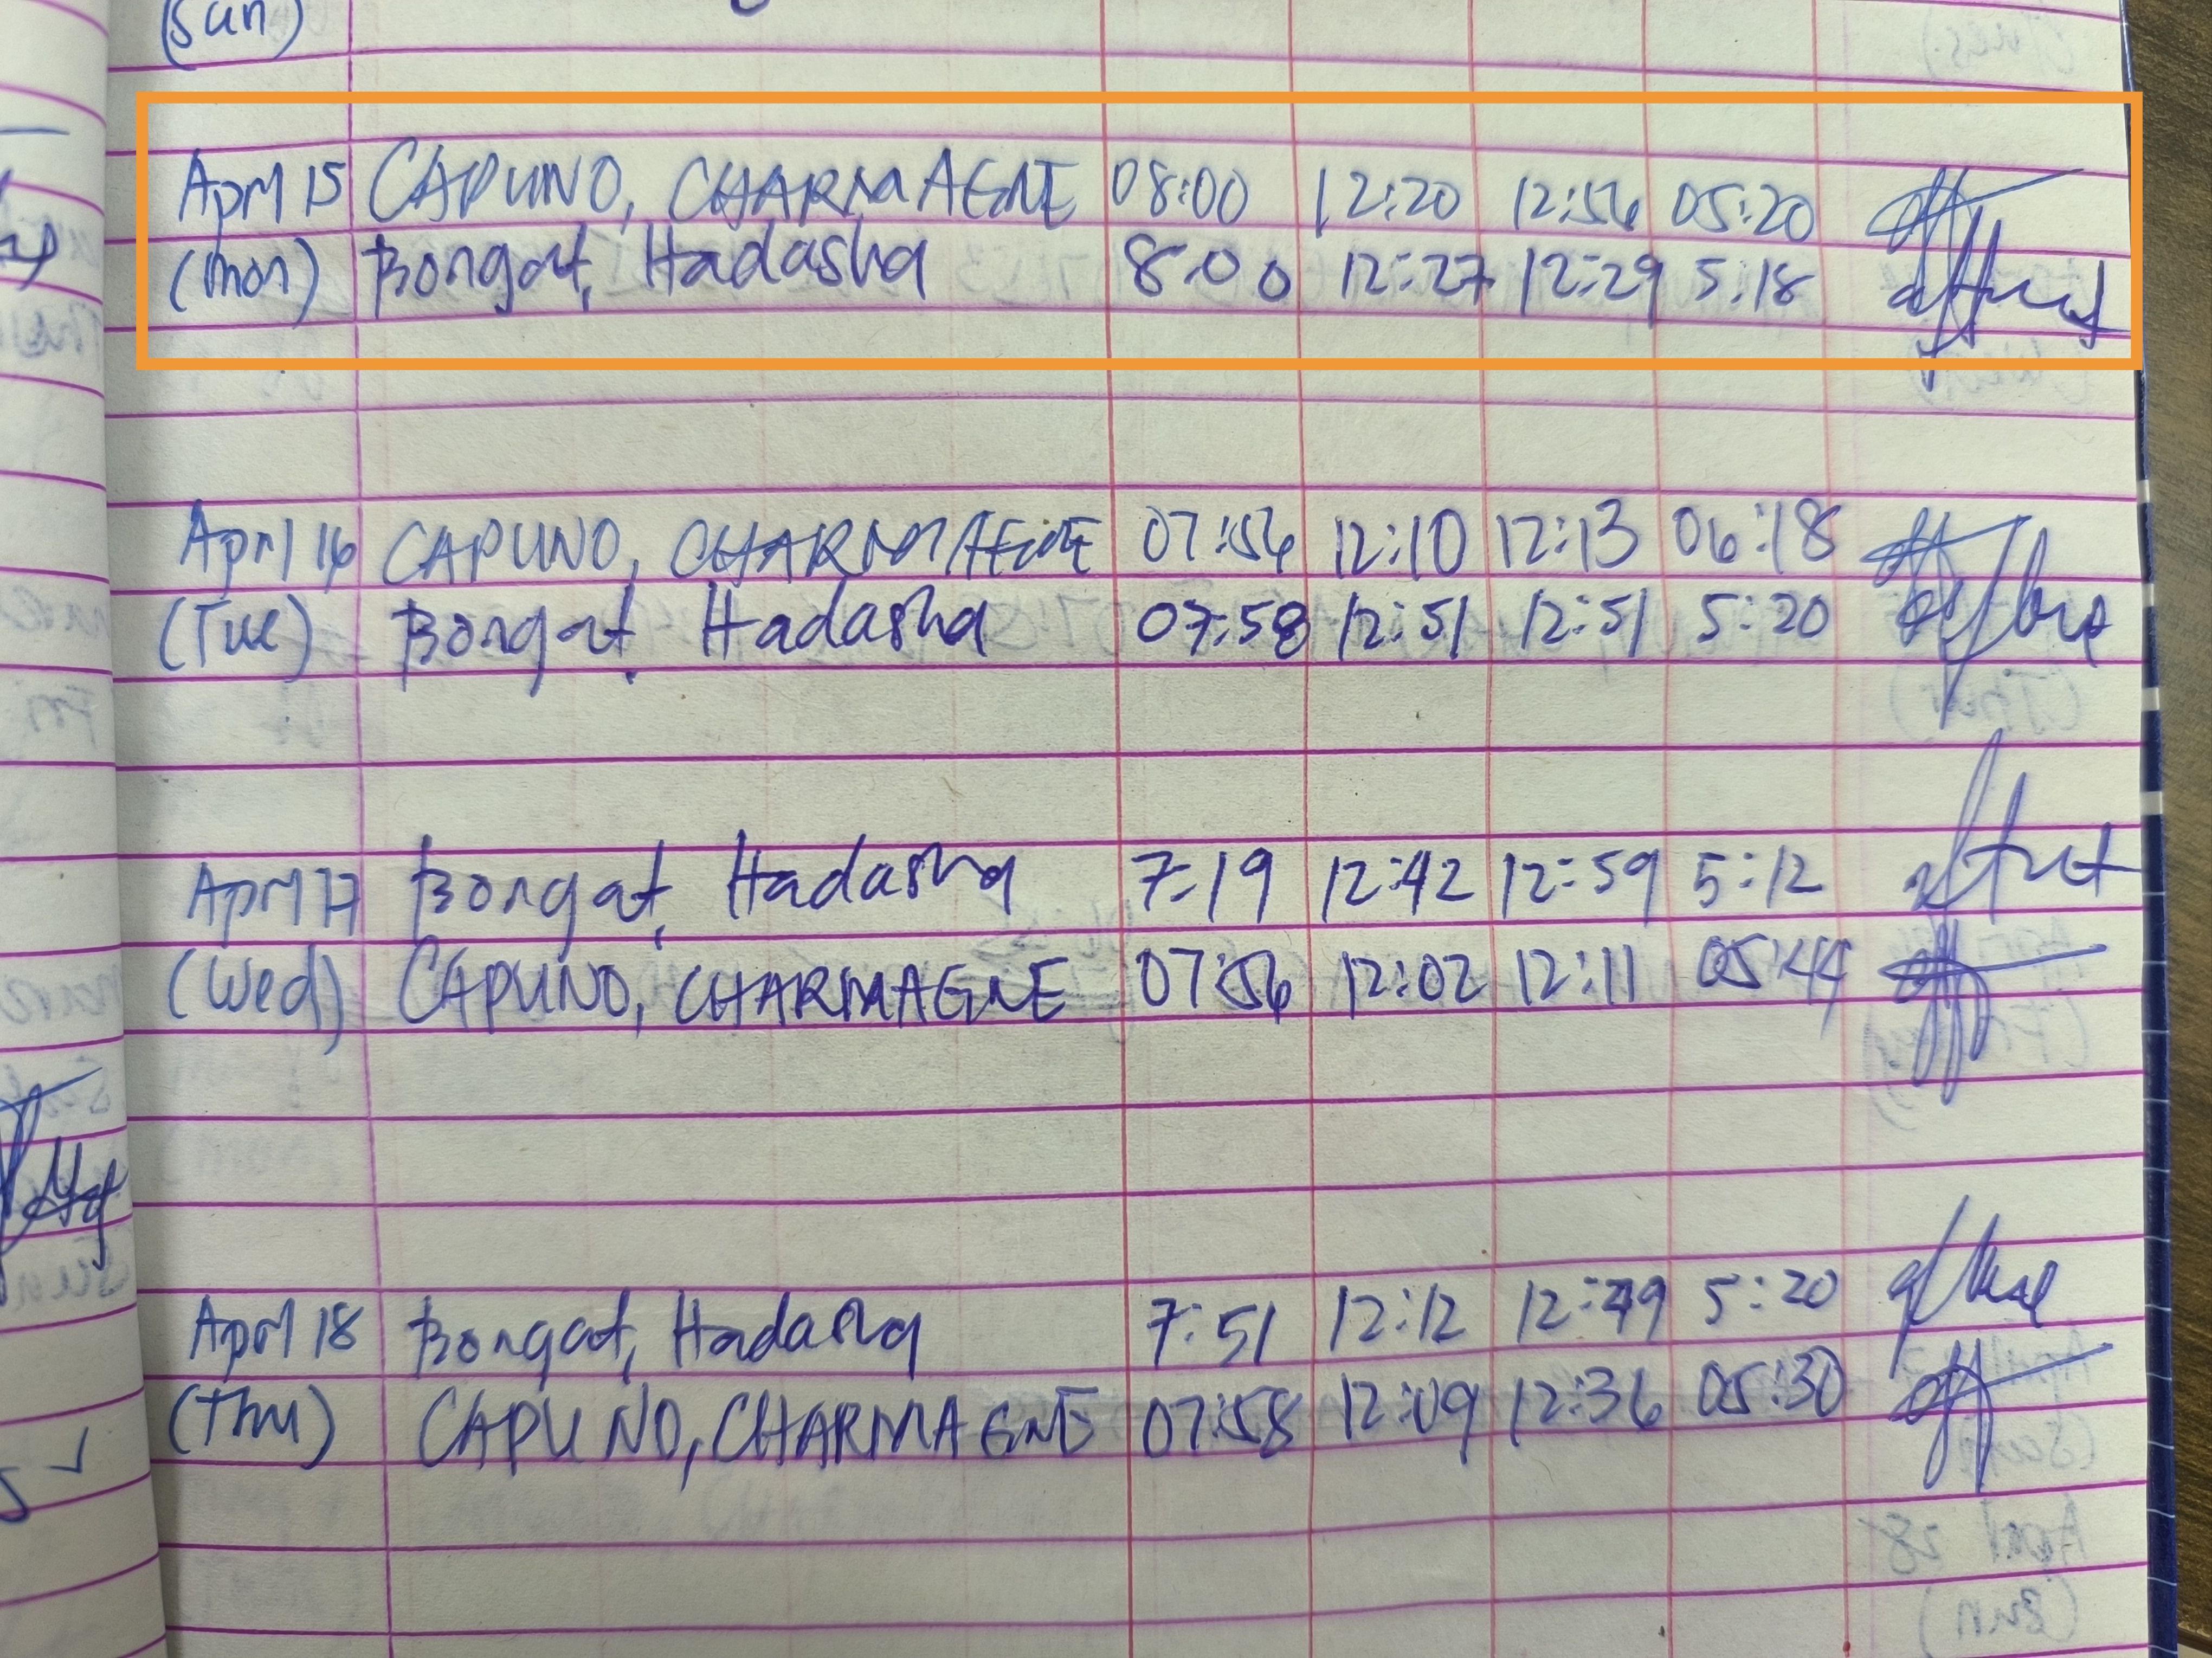 (Sun)
April 15 CAPUNO, CHARMAGNE 08:00 12:20 12:56 05:20
(Mon) Bongat, Hadasha 8:00 12:27 12:29 5:18
April 16 CAPUNO, CHARMAGNE 07:56 12:10 12:13 06:18
(Tue) Bongat, Hadasha 07:58 12:51 12:51 5:20
April 17 Bongat, Hadasha 7:19 12:42 12:59 5:12
(Wed) CAPUNO, CHARMAGNE 07:56 12:02 12:11 05:44
April 18 Bongat, Hadasha 7:51 12:12 12:49 5:20
(Thu) CAPUNO, CHARMAGNE 07:58 12:09 12:36 05:30